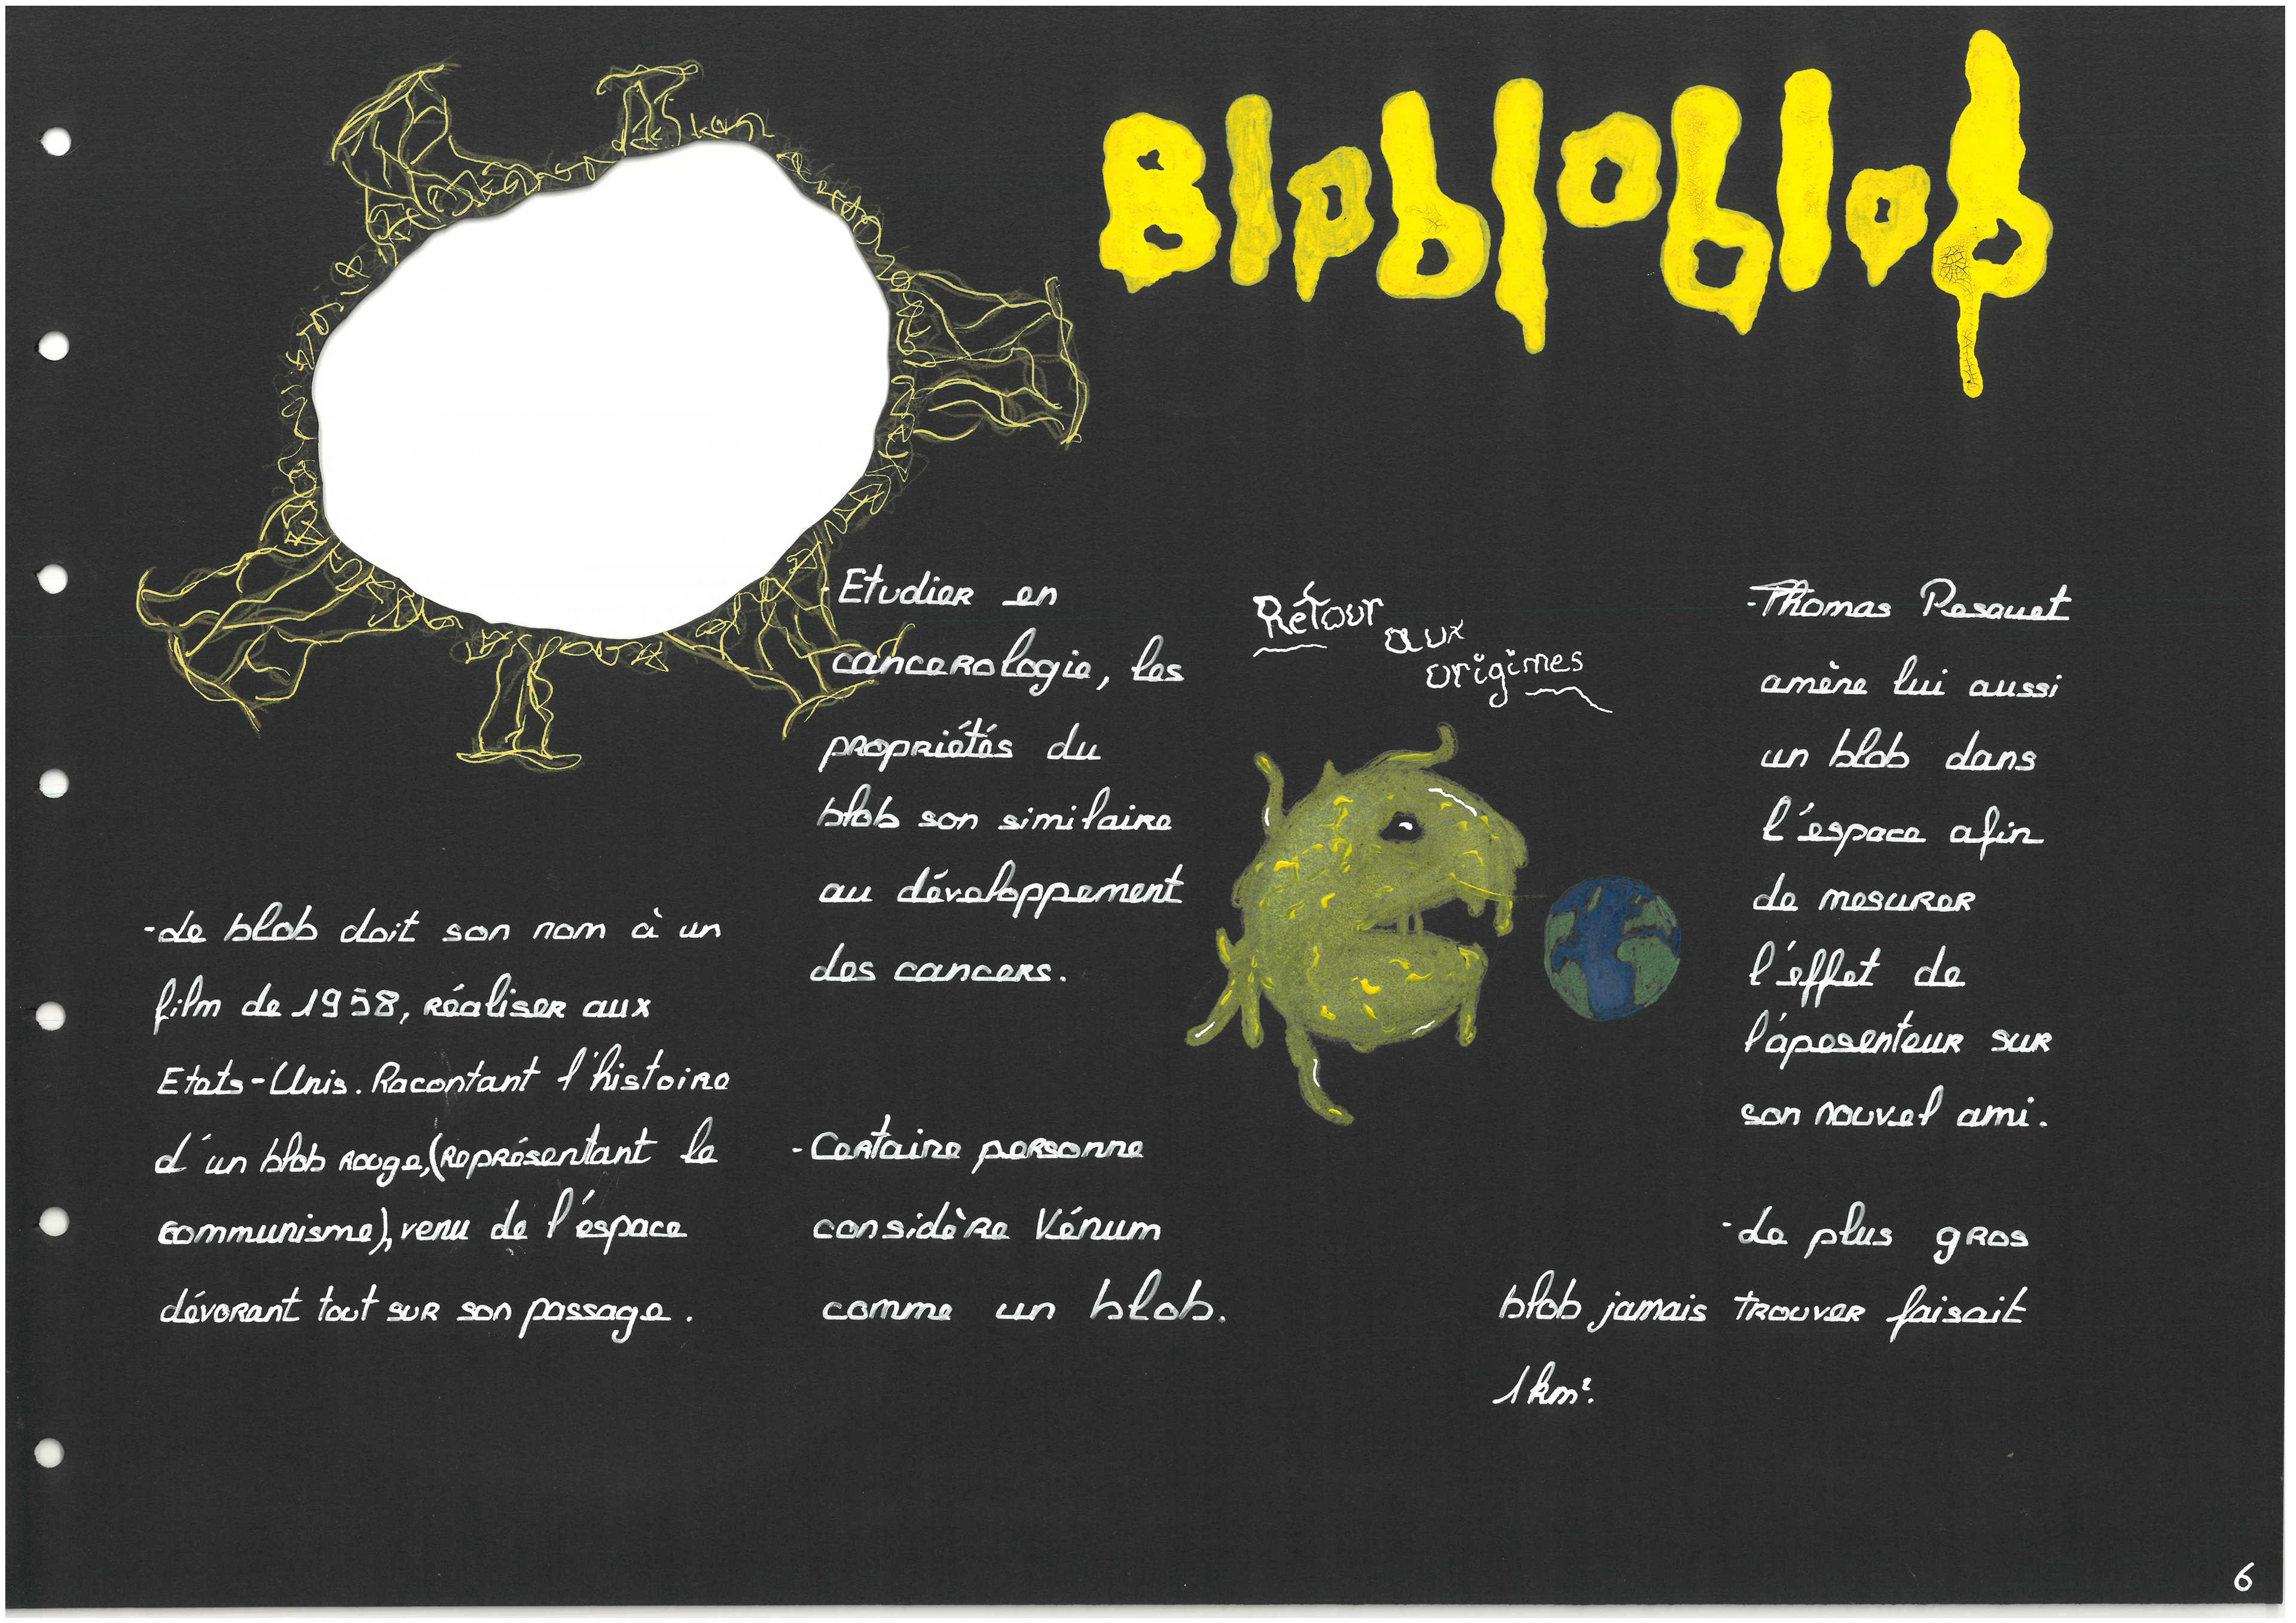 Blobloblob
-Le blob doit son nom à un
film de 1958, réaliser aux
Etats-Unis. Racontant l'histoire
d'un blob rouge, (représentant le
communisme), venu de l'espace
dévorant tout sur son passage.
-Etudier en
cancerologie, les
propriétés du
blob son similaire
au développement
des cancers.
-Certaine personne
considère Vénum
comme un blob.
Rétour
aux
origines
-Thomas Pesquet
amène lui aussi
un blob dans
l'espace afin
de mesurer
l'effet de
l'apesenteur sur
son nouvel ami.
-Le plus gros
blob jamais trouver faisait
1km².
6